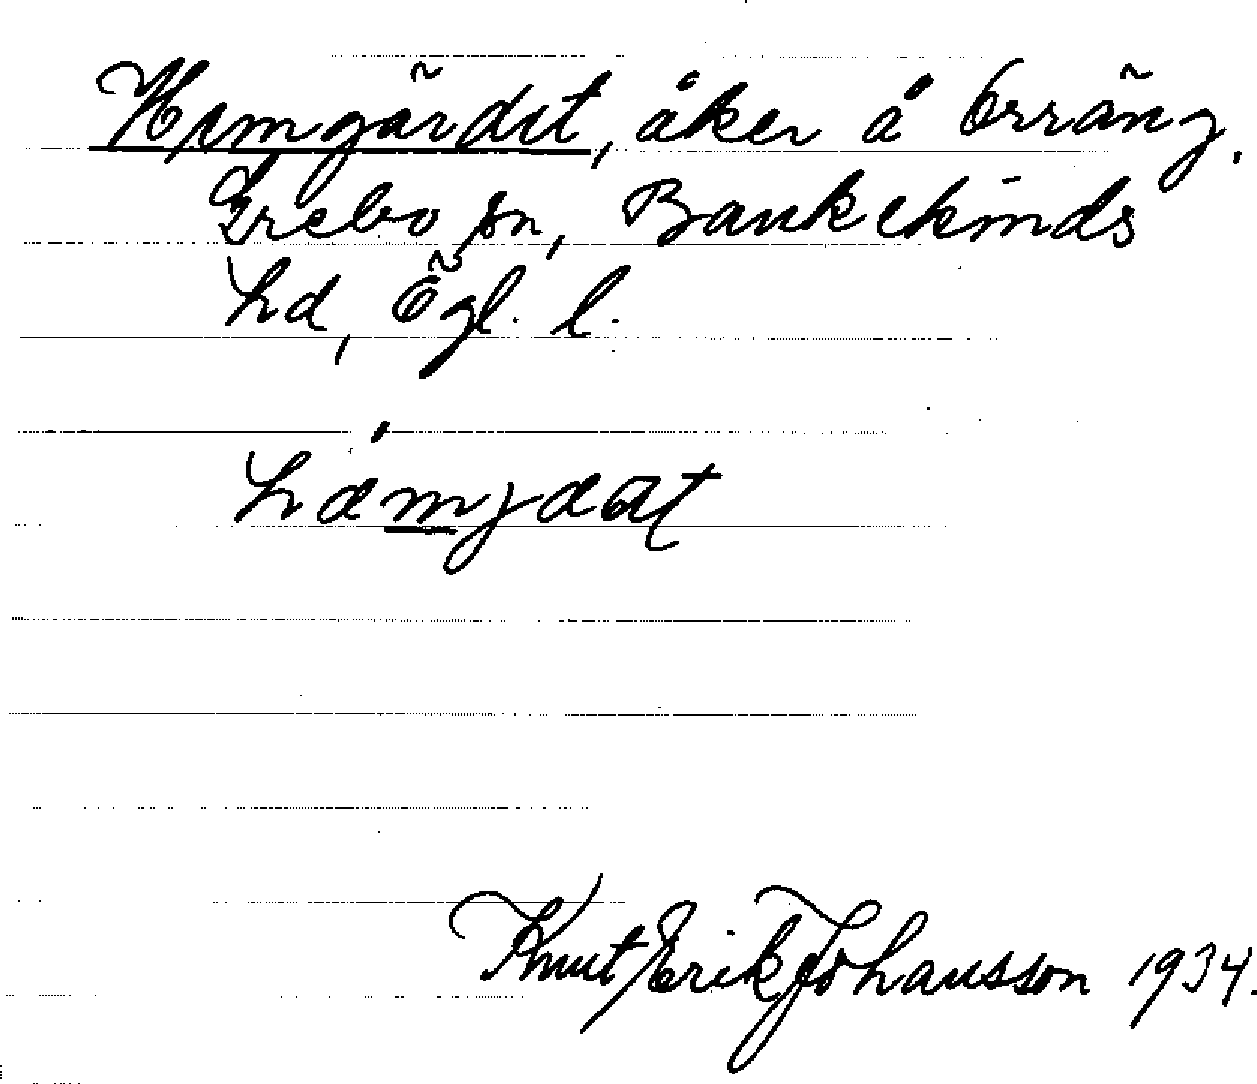 Hemgärdet, åker å Örräng.
Grebo sn, Bankekinds
hd, Ögl. l.
hæmjææt
Knut Erik Johansson 1934.